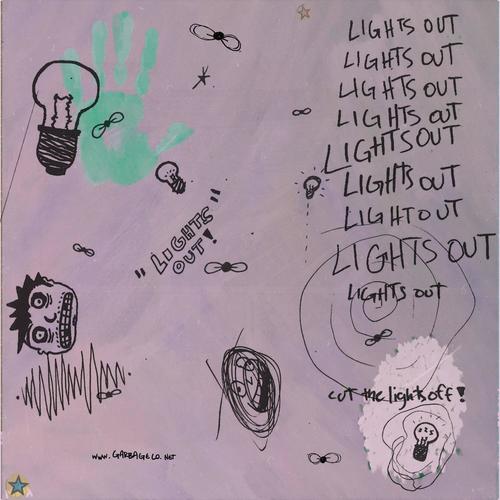 LIGHTS OUT
LIGHTS OUT
LIGHTS OUT
LIGHTS OUT
LIGHTS OUT
LIGHTS OUT
LIGHT OUT
LIGHTS OUT
LIGHTS OUT
"LIGHTS
OUT!"
cut the lights off!
zzz
WWW.GARBAGECO.NET